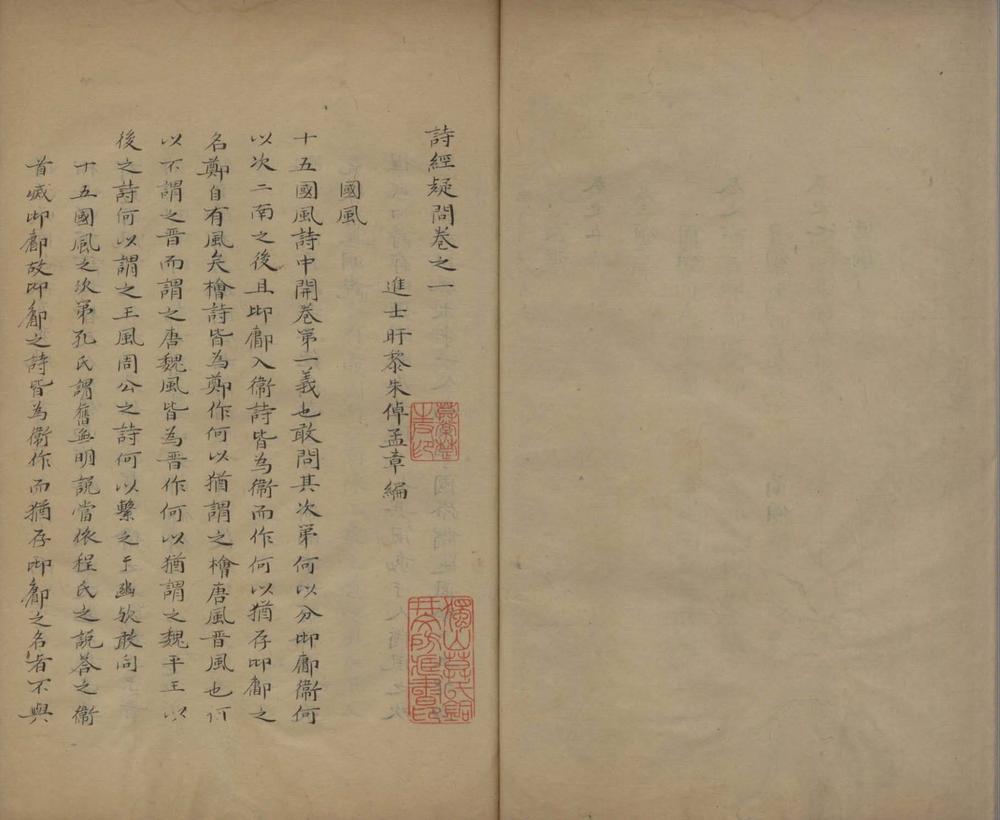 詩經疑問卷之一
進士盱黎朱倬孟章編
國風
十五國風詩中開卷第一義也敢問其次第何以分邶鄘衛何
以次二南之後且邶鄘入衛詩皆為衛而作何以猶存邶鄘之
名鄭自有風矣檜詩皆為鄭作何以猶謂之檜唐風晉風也何
以不謂之晉而謂之唐魏風皆為晉作何以猶謂之魏平王以
後之詩何以謂之王風周公之詩何以繫之于豳欤敢问
十五國風之次第孔氏謂舊無明說當依程氏之説答之衛
首滅邶鄘故邶鄘之詩皆為衛作而猶存邶鄘之名者不與
莫棠楚生印
獨山莫氏銅井文房藏書印